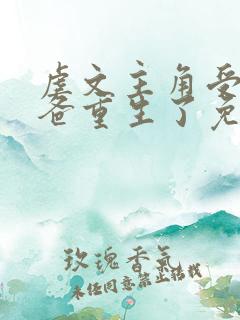 虐文主角受
爸重生了免
玫瑰香气
未经同意禁止转载